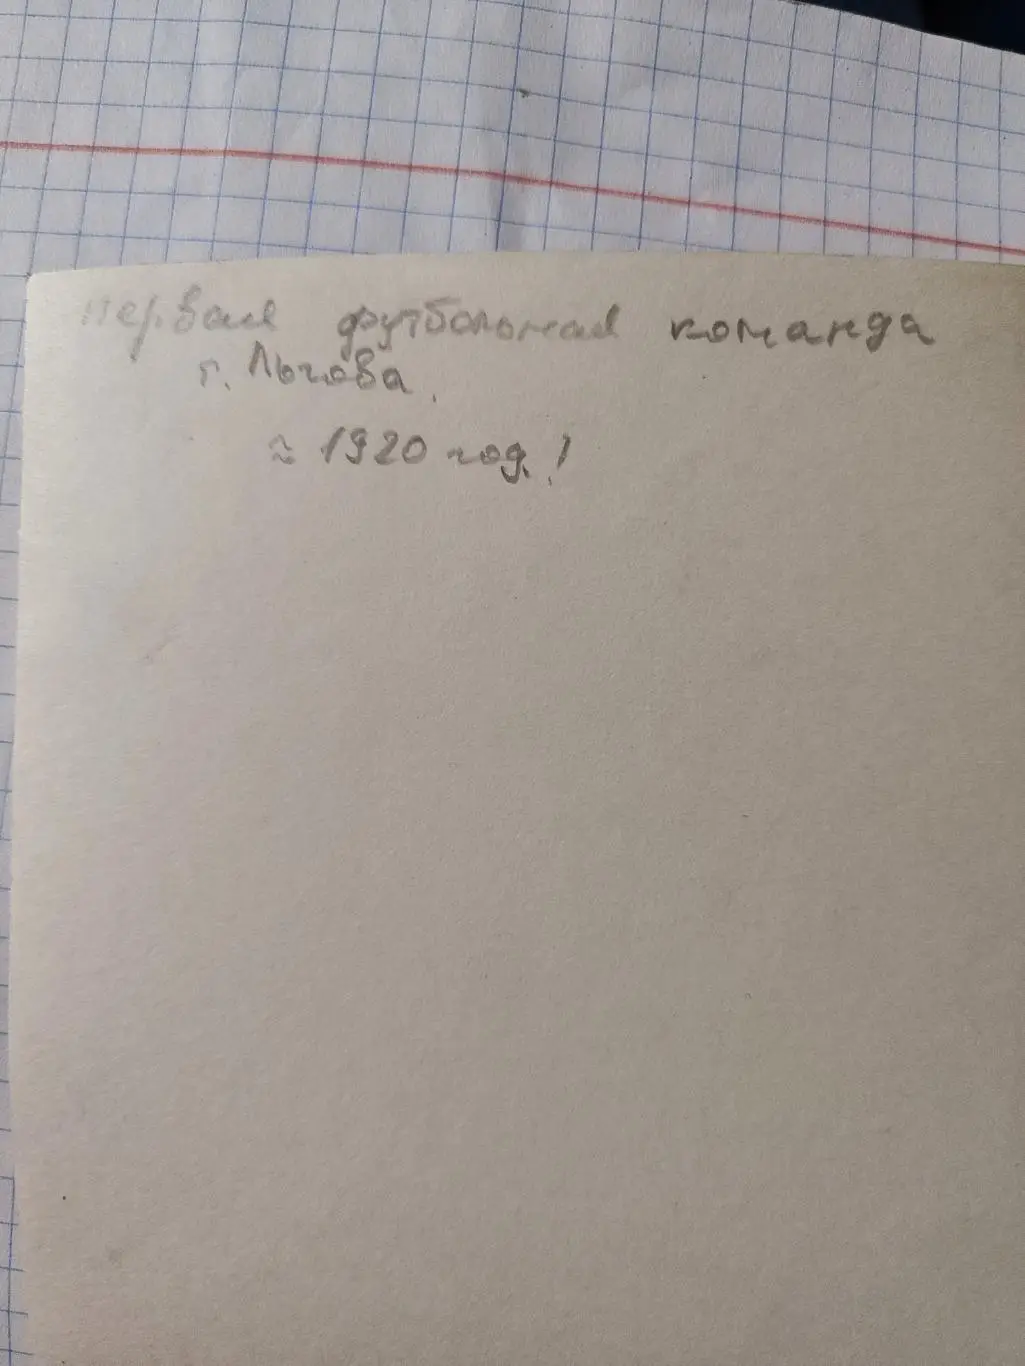 первая футбольная команда
г. Льгова.
≈ 1920 год.!